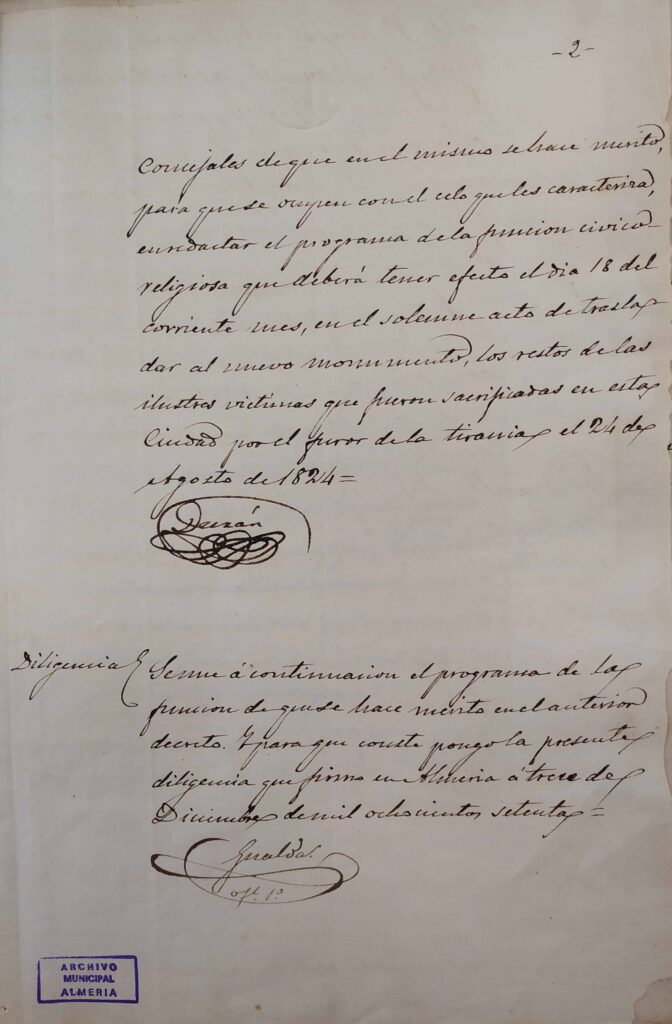 - 2 -
Concejales de que en el mismo se hace merito,
para que se ocupen con el celo que les caracteriza,
en redactar el programa de la funcion civico-
religiosa que deberá tener efecto el dia 18 del
corriente mes, en el solemne acto de trasla-
dar al nuevo monumento, los restos de las
ilustres victimas que fueron sacrificadas en esta
Ciudad por el furor de la tirania el 24 de
Agosto de 1824 =
Durán
Diligencia Se une á continuacion el programa de la
funcion de que se hace merito en el anterior
decreto. Y para que conste pongo la presente
diligencia que firmo en Almeria á trece de
Diciembre de mil ochocientos setenta =
ofl. 1º
ARCHIVO
MUNICIPAL
ALMERIA